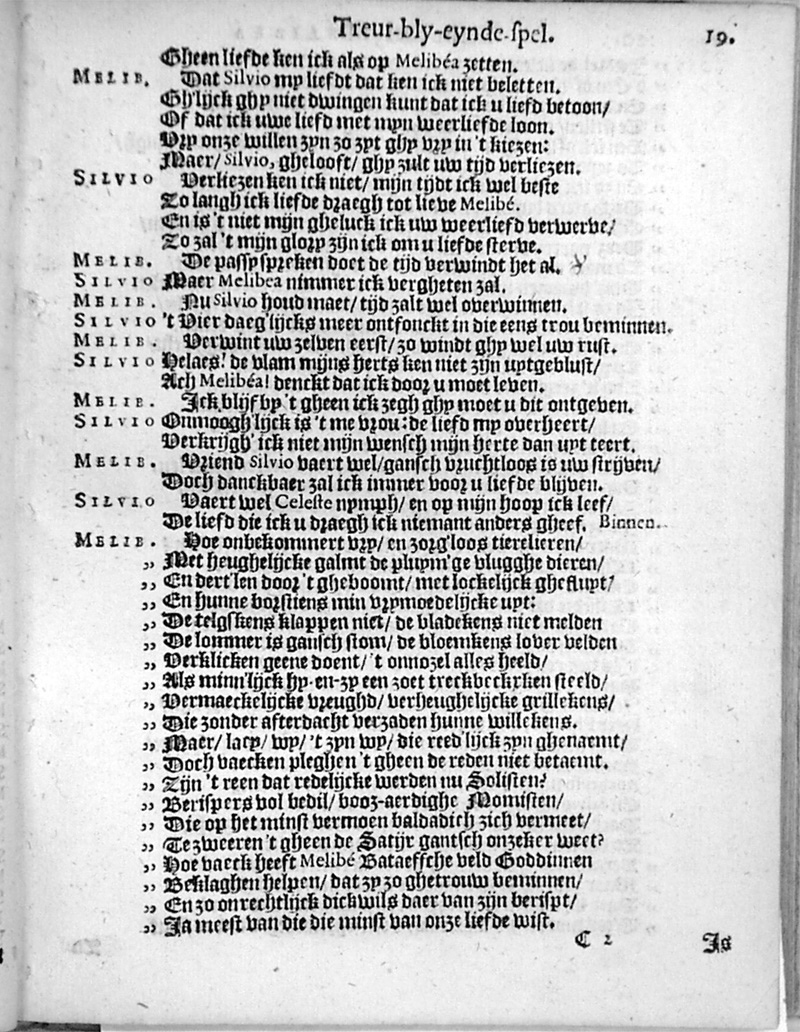 Treur-bly-eynde-spel. 19.
Gheen liefde ken ick als op Melibéa zetten.
MELIB. Dat Silvio my liefdt dat ken ick niet beletten.
Gh'lijck ghy niet dwingen kunt dat ick u lief betoon/
Of dat ick uwe liefd met myn weerliefde loon.
Vry onze willen zyn zo zyt ghy vry in 't kiezen:
Maer/ Silvio, ghelooft/ ghy zult uw tijd verliezen.
SILVIO Verliezen ken ick niet/ mijn tijdt ick wel beste
To langh ick liefde draegh tot lieve Melibé.
En is 't niet mijn gheluck ick uw weerlief verwerve/
To zal 't mijn glory zijn ick om u liefde sterve.
MELIB. De passy spreken doet de tijd verwindt het al.
SILVIO Maer Melibea nimmer ick vergheten zal.
MELIB. Nu Silvio houd maet/ tijd zalt wel overwinnen.
SILVIO 't Vier daeg'lijcks meer ontfonckt in die eens trou beminnen.
MELIB. Verwint uw zelven eerst/ zo windt ghy wel uw rust.
SILVIO Helaes! de vlam mijns herts ken niet zijn uytgeblust/
Ach Melibéa! denckt dat ick door u moet leven.
MELIB. Ick blijf by 't gheen ick zegh ghy moet u dit ontgeven.
SILVIO Onmoogh'lijck is 't me vrou: de liefd my overheert/
Verkrijgh' ick niet mijn wensch mijn herte dan uyt teert.
MELIB. Vriend Silvio vaert wel/ gansch vruchtloos is uw strijven/
Doch danckbaer zal ick immer voor u liefde blijven.
SILVIO Vaert wel Celeste nymph/ en op mijn hoop ick leef/
De liefd die ick u draegh ick niemant anders gheef. Binnen.
MELIB. Hoe onbekommert vry/ en zorg'loos tierelieren/
„ Met heughelijcke galmt de pluym'ge vlugghe dieren/
„ En dert'len door 't gheboomt/ met lockelijck ghefluyt/
„ En hunne borstiens min vrymoedelijcke uyt:
„ De telgskens klappen niet/ de bladekens niet melden
„ De lommer is gansch stom/ de bloemkens lover velden
„ Verklicken geene doent/ 't onnozel alles heeld/
„ Als minn'lijck hy-en-zy een zoet treckbeckxken steeld/
„ Vermaeckelijcke vreughd/ verheughelijcke grillekens/
„ Die zonder afterdacht verzaden hunne willekens.
„ Maer/ lacy/ wy/ 't zyn wy/ die reed'lijck zyn ghenaemt/
„ Doch vaecken pleghen 't gheen de reden niet betaemt.
„ Tijn 't reen dat redelijcke werden nu Solisten?
„ Berispers vol bedil/ booz-aerdighe Momisten/
„ Die op het minst vermoen baldadich zich vermeet/
„ Te zweeren 't gheen de Satijr gantsch onzeker weet?
„ Hoe vaeck heeft Melibé Bataefsche veld Goddinnen
„ Beklaghen helpen/ dat zy zo ghetrouw beminnen/
„ En zo onrechtlijck dickwils daer van zijn berispt/
„ Ja meest van die die minst van onze liefde wist.
C 2 Is